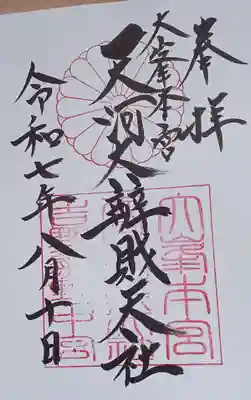 奉拝
大峯本宮
天河大辨財天社
令和七年八月十日
大峯本宮